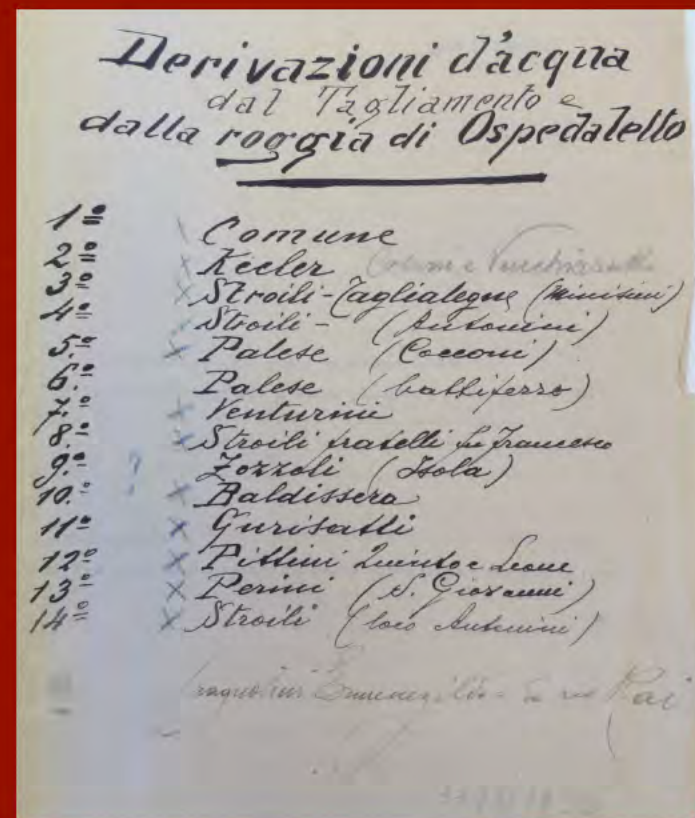 Derivazioni d'acqua
dal Tagliamento e
dalla roggia di Ospedaletto
1º Comune
2º Kecler
3º Stroili-Taglialegne (Minisini)
4º Stroili- (Antonini)
5º Palese (Cocconi)
6º Palese (battiferro)
7º Venturini
8º Stroili fratelli fu Francesco
9º Zozzoli (Isola)
10º ? Baldissera
11º Gurisatti
12º Pittini Quinto e Leone
13º Perini (S. Giovanni)
14º Stroili (loco Antonini)
Rai